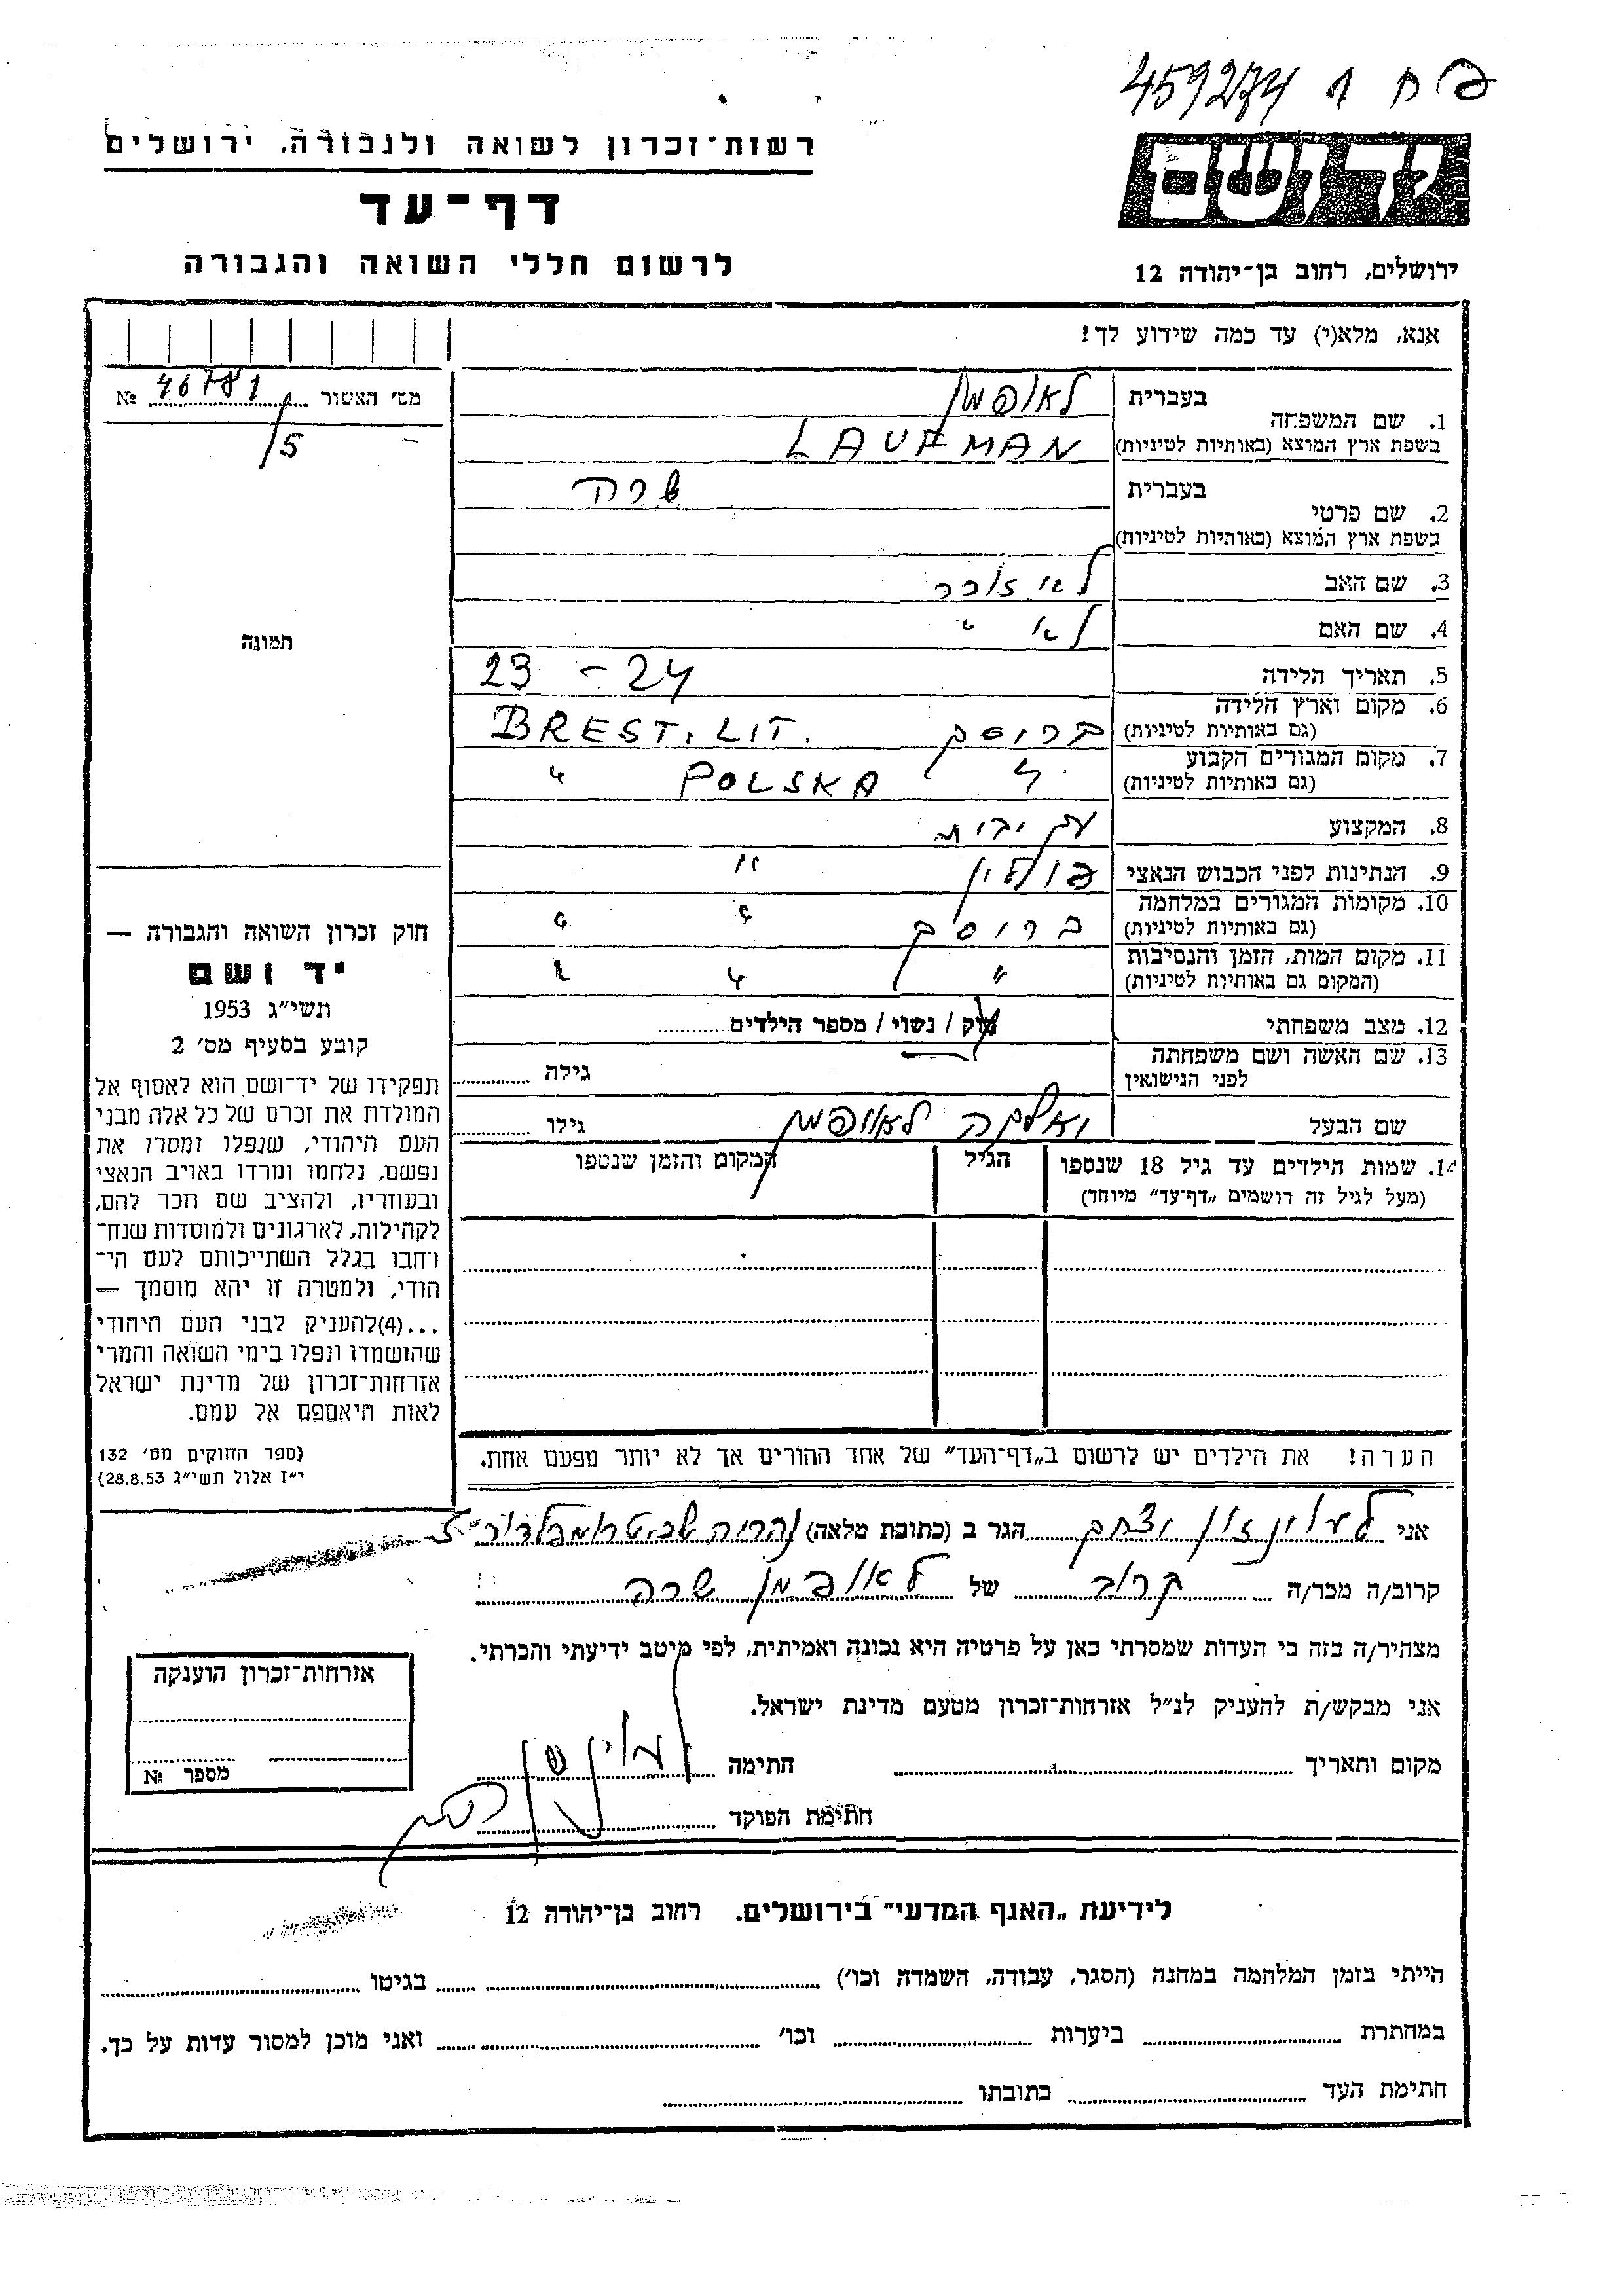 פ ח ר 459274
רשות־זכרון לשואה ולגבורה, ירושלים
יד ושם
דף־עד
לרשום חללי השואה והגבורה
ירושלים, רחוב בן־יהודה 12
אנא, מלא(י) עד כמה שידוע לך!
מס׳ האשור № 46781/5
1. שם המשפחה בעברית לאופמן
בשפת ארץ המוצא (באותיות לטיניות) LAUFMAN
2. שם פרטי בעברית שרה
בשפת ארץ המוצא (באותיות לטיניות)
3. שם האב לא זוכר
4. שם האם לא "
5. תאריך הלידה 23 - 24
6. מקום וארץ הלידה (גם באותיות לטיניות) BREST. LIT.
7. מקום המגורים הקבוע (גם באותיות לטיניות) " POLSKA "
8. המקצוע
9. הנתינות לפני הכבוש הנאצי פולין "
10. מקומות המגורים במלחמה (גם באותיות לטיניות) " "
11. מקום המות, הזמן והנסיבות (המקום גם באותיות לטיניות) " " "
12. מצב משפחתי רוק / נשוי / מספר הילדים
13. שם האשה ושם משפחתה לפני הנישואין גילה
שם הבעל לאופמן גילו
14. שמות הילדים עד גיל 18 שנספו הגיל המקום והזמן שנספו
(מעל לגיל זה רושמים „דף־עד” מיוחד)
תמונה
חוק זכרון השואה והגבורה —
יד ושם
תשי״ג 1953
קובע בסעיף מס׳ 2
תפקידו של יד־ושם הוא לאסוף אל
המולדת את זכרם של כל אלה מבני
העם היהודי, שנפלו ומסרו את
נפשם, נלחמו ומרדו באויב הנאצי
ובעוזריו, ולהציב שם וזכר להם,
לקהילות, לארגונים ולמוסדות שנח־
רחבו בגלל השתייכותם לעם הי־
הודי, ולמטרה זו יהא מוסמך —
...(4)להעניק לבני העם היהודי
שהושמדו ונפלו בימי השואה והמרי
אזרחות־זכרון של מדינת ישראל
לאות היאספם אל עמם.
(ספר החוקים מס׳ 132
י״ז אלול תשי״ג 28.8.53)
הערה! את הילדים יש לרשום ב„דף־העד” של אחד ההורים אך לא יותר מפעם אחת.
אני הגר ב (כתובת מלאה)
קרוב/ה מכר/ה קרוב של לאופמן שרה
מצהיר/ה בזה כי העדות שמסרתי כאן על פרטיה היא נכונה ואמיתית, לפי מיטב ידיעתי והכרתי.
אני מבקש/ת להעניק לנ״ל אזרחות־זכרון מטעם מדינת ישראל.
מקום ותאריך חתימה
חתימת הפוקד
אזרחות־זכרון הוענקה
מספר №
לידיעת „האגף המדעי” בירושלים. רחוב בן־יהודה 12
הייתי בזמן המלחמה במחנה (הסגר, עבודה, השמדה וכו׳) בגיטו
במחתרת ביערות וכו׳ ואני מוכן למסור עדות על כך.
חתימת העד כתובתו